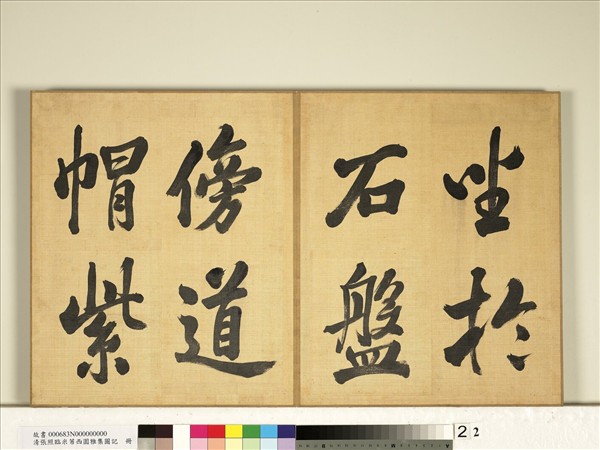 坐於
石盤
傍道
帽紫
故書 000683N000000000
清張照臨米芾西園雅集圖記 冊
2 2